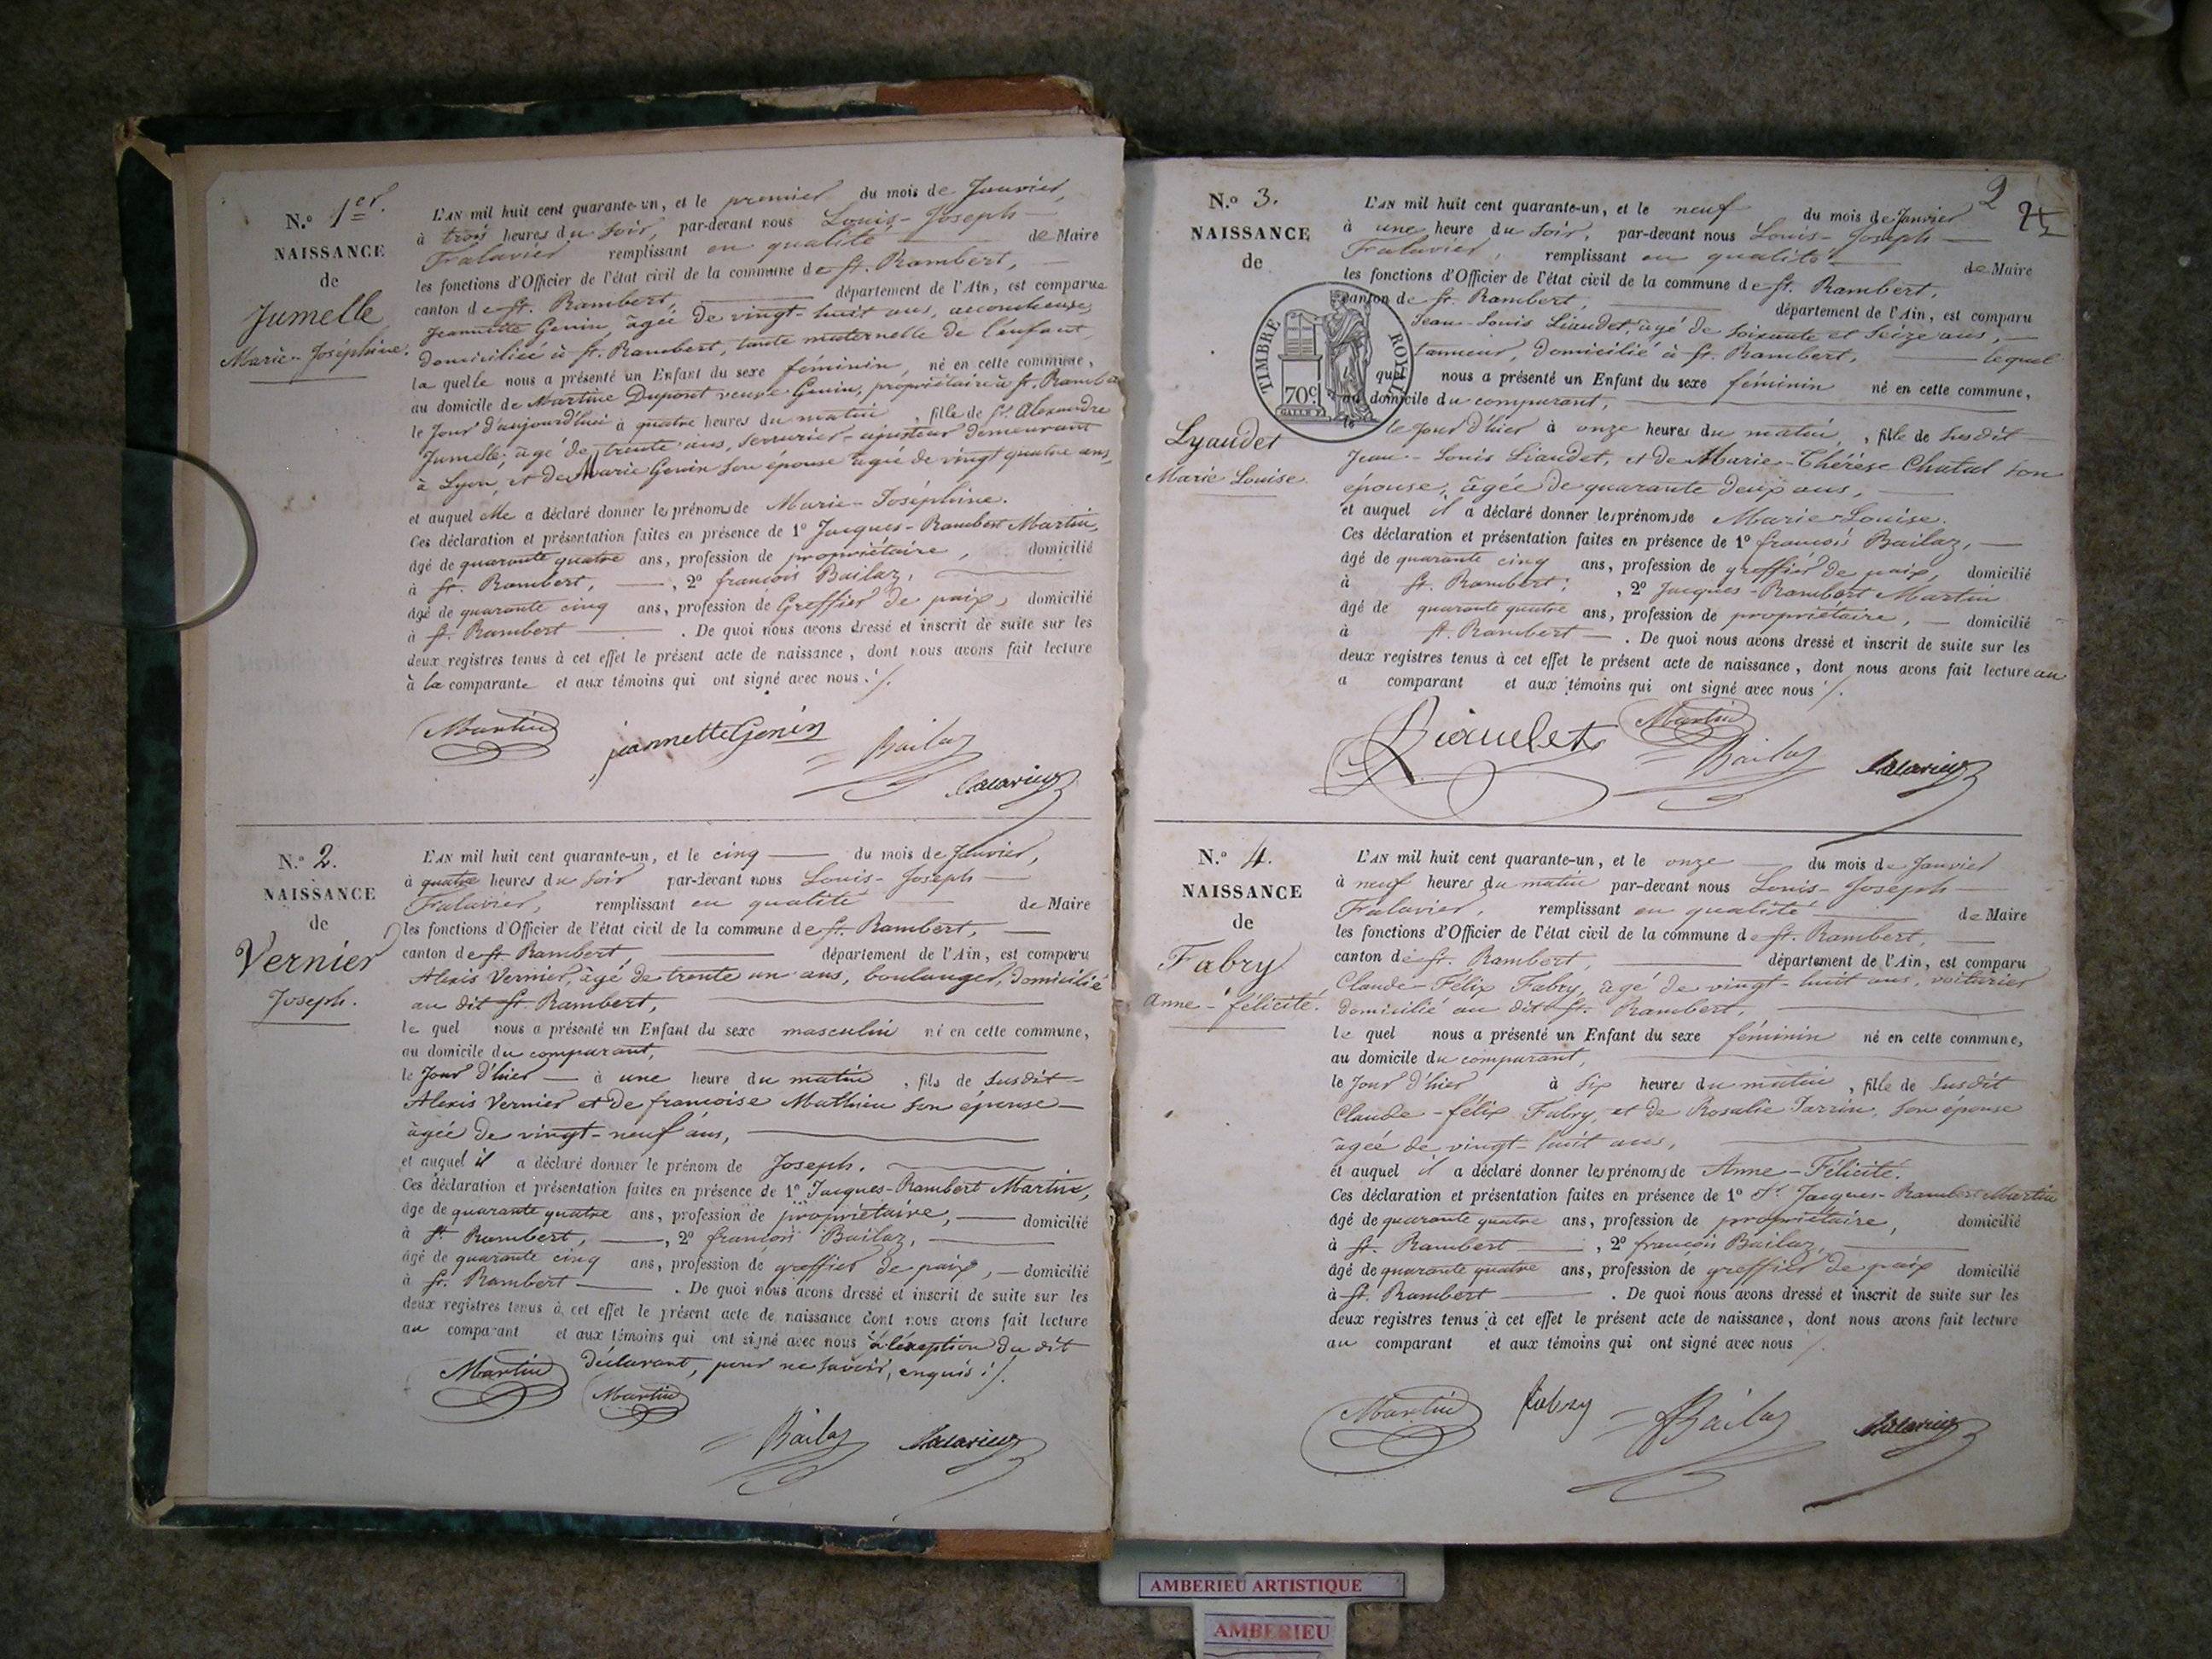 N.º 1er.
NAISSANCE
de
Jumelle
Marie-Joséphine.
L'AN mil huit cent quarante-un, et le premier du mois de Janvier,
à trois heures du soir, par-devant nous Louis-Joseph
remplissant en qualité de Maire
les fonctions d'Officier de l'état civil de la commune de St. Rambert,
canton de St. Rambert, département de l'Ain, est comparue
Jeannette Genin, âgée de vingt-huit ans, accoucheuse,
domiciliée à St. Rambert, tante maternelle de l'enfant
la quelle nous a présenté un Enfant du sexe féminin, né en cette commune,
au domicile de Martine Dupont veuve Genin, propriétaire à St. Rambert
le Jour d'aujourd'hui à quatre heures du matin, fille de Sr. Alexandre
Jumelle, âgé de trente ans, serrurier-ajusteur demeurant
à Lyon, et de Marie Genin son épouse âgée de vingt quatre ans,
et auquel elle a déclaré donner les prénoms de Marie-Joséphine.
Ces déclaration et présentation faites en présence de 1º Jacques-Rambert Martin,
âgé de quarante quatre ans, profession de propriétaire, domicilié
à St. Rambert, , 2º françois Bailaz,
âgé de quarante cinq ans, profession de Greffier de paix, domicilié
à St. Rambert . De quoi nous avons dressé et inscrit de suite sur les
deux registres tenus à cet effet le présent acte de naissance, dont nous avons fait lecture
à la comparante et aux témoins qui ont signé avec nous ./.
Martin jeannette Genin Bailaz
N.º 2.
NAISSANCE
de
Vernier
Joseph.
L'AN mil huit cent quarante-un, et le cinq du mois de Janvier,
à quatre heures du soir par-devant nous Louis-Joseph
remplissant en qualité de Maire
les fonctions d'Officier de l'état civil de la commune de St. Rambert,
canton de St. Rambert, département de l'Ain, est comparu
Alexis Vernier, âgé de trente un ans, boulanger, domicilié
au dit St. Rambert,
le quel nous a présenté un Enfant du sexe masculin né en cette commune,
au domicile du comparant,
le Jour d'hier à une heure du matin, fils de susdit
Alexis Vernier et de françoise Mathieu son épouse
âgée de vingt-neuf ans,
et auquel il a déclaré donner le prénom de Joseph.
Ces déclaration et présentation faites en présence de 1º Jacques-Rambert Martin,
âgé de quarante quatre ans, profession de propriétaire, domicilié
à St. Rambert, , 2º françois Bailaz,
âgé de quarante cinq ans, profession de greffier de paix, domicilié
à St. Rambert . De quoi nous avons dressé et inscrit de suite sur les
deux registres tenus à cet effet le présent acte de naissance dont nous avons fait lecture
au comparant et aux témoins qui ont signé avec nous à l'exception du dit
déclarant, pour ne savoir, enquis ./.
Martin Martin
Bailaz
2
N.º 3.
NAISSANCE
de
Lyaudet
Marie Louise
TIMBRE ROYAL
70c.
L'AN mil huit cent quarante-un, et le neuf du mois de Janvier
à une heure du soir, par-devant nous Louis-Joseph
remplissant en qualité de Maire
les fonctions d'Officier de l'état civil de la commune de St. Rambert,
canton de St. Rambert, département de l'Ain, est comparu
Jean-Louis Liaudet âgé de soixante et seize ans,
tanneur, domicilié à St. Rambert, lequel
quel nous a présenté un Enfant du sexe féminin né en cette commune,
au domicile du comparant,
le le Jour d'hier à onze heures du matin, fille de susdit
Jean-Louis Liaudet, et de Marie-Thérèse Chatal son
épouse, âgée de quarante deux ans,
et auquel il a déclaré donner les prénoms de Marie-Louise.
Ces déclaration et présentation faites en présence de 1º françois Bailaz,
âgé de quarante cinq ans, profession de greffier de paix, domicilié
à St. Rambert, , 2º Jacques-Rambert Martin
âgé de quarante quatre ans, profession de propriétaire, domicilié
à St. Rambert . De quoi nous avons dressé et inscrit de suite sur les
deux registres tenus à cet effet le présent acte de naissance, dont nous avons fait lecture au
a comparant et aux témoins qui ont signé avec nous ./.
Liaudet Martin Bailaz
N.º 4.
NAISSANCE
de
Fabry
Anne-félicité.
L'AN mil huit cent quarante-un, et le onze du mois de Janvier
à neuf heures du matin par-devant nous Louis-Joseph
remplissant en qualité de Maire
les fonctions d'Officier de l'état civil de la commune de St. Rambert,
canton de St. Rambert, département de l'Ain, est comparu
Claude-Félix Fabry, âgé de vingt-huit ans, voiturier
domicilié au dit St. Rambert,
le quel nous a présenté un Enfant du sexe féminin né en cette commune,
au domicile du comparant,
le Jour d'hier à six heures du matin, fille de susdit
Claude-félix Fabry, et de Rosalie Jarrin, son épouse
âgée de vingt-huit ans,
et auquel il a déclaré donner les prénoms de Anne-Félicité.
Ces déclaration et présentation faites en présence de 1º Sr. Jacques-Rambert Martin
âgé de quarante quatre ans, profession de propriétaire, domicilié
à St. Rambert , 2º françois Bailaz,
âgé de quarante quatre ans, profession de greffier de paix domicilié
à St. Rambert . De quoi nous avons dressé et inscrit de suite sur les
deux registres tenus à cet effet le présent acte de naissance, dont nous avons fait lecture
au comparant et aux témoins qui ont signé avec nous ./.
Martin Fabry Bailaz
AMBERIEU ARTISTIQUE
AMBERIEU